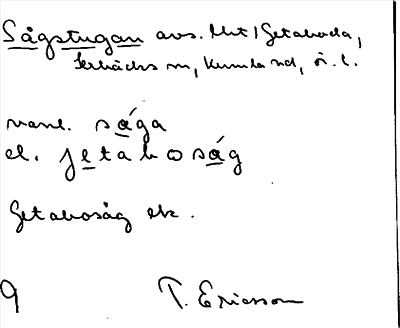 Sågstugan avs. lht 1 Getaboda,
Lerbäcks sn, Kumla hd, ör. l.
vanl. såga
el. jetaboság
Getabosåg etc.
9 T. Ericsson